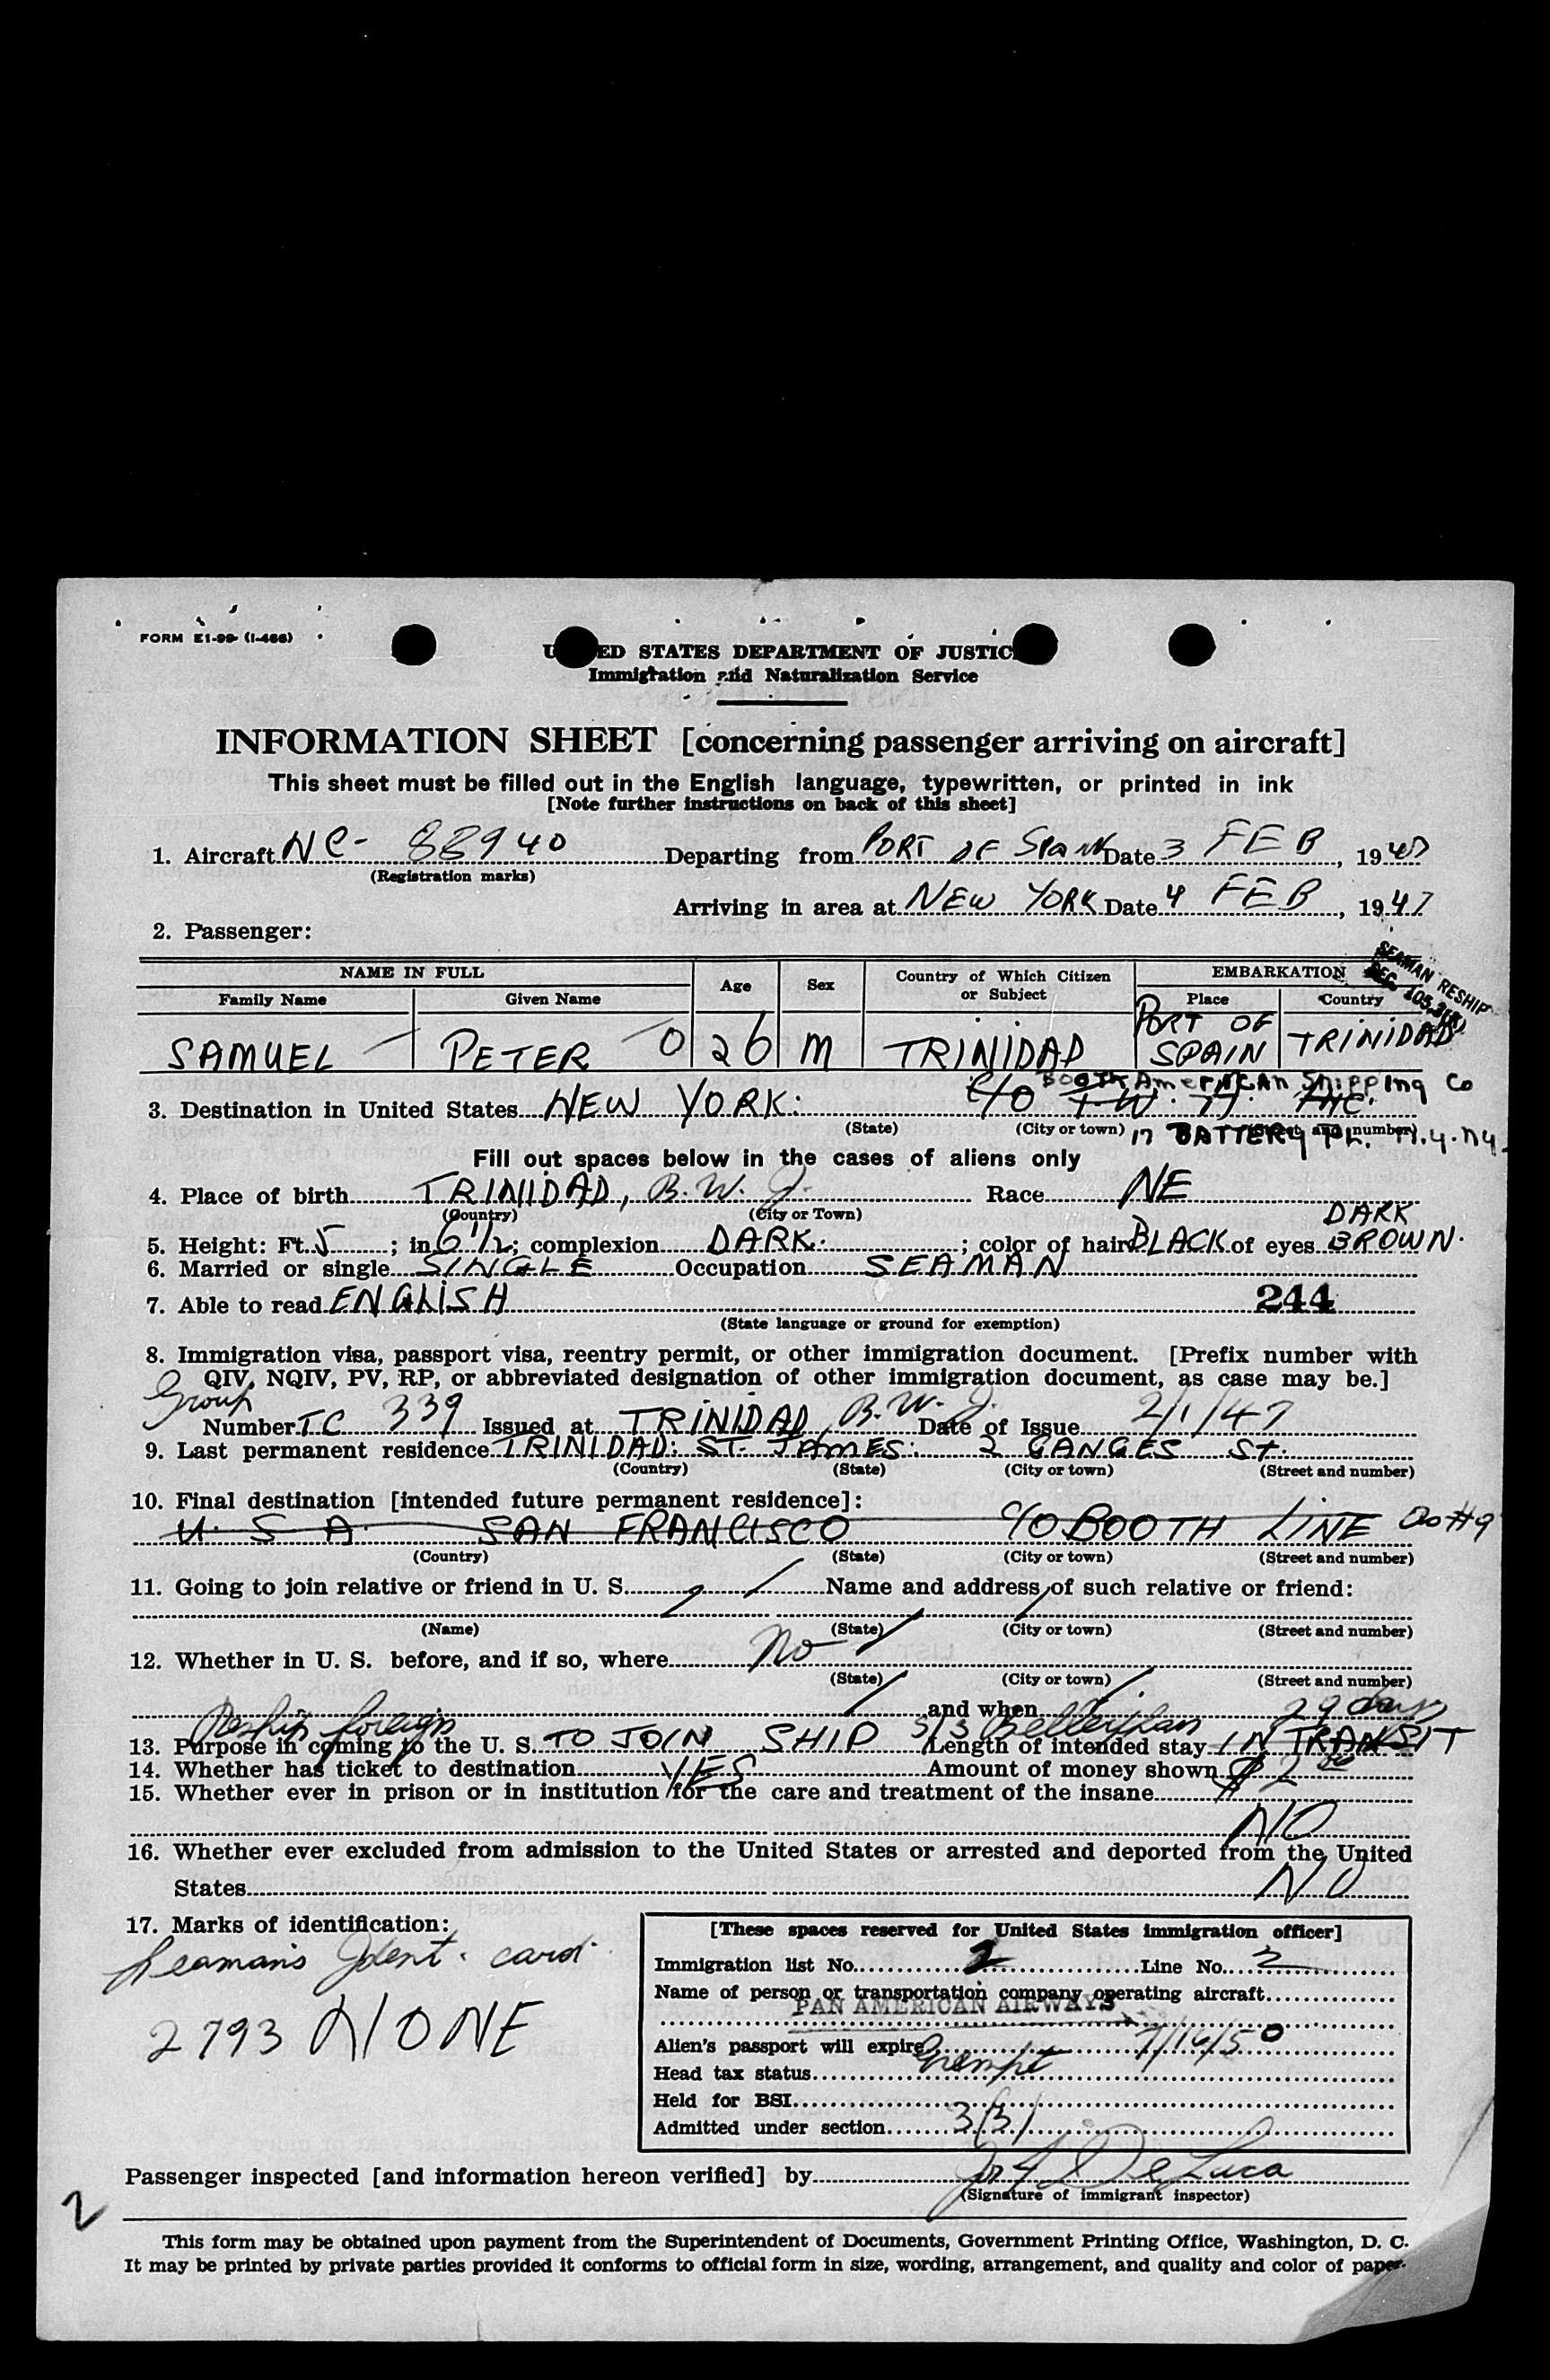 FORM E1-99 (I-466)
UNITED STATES DEPARTMENT OF JUSTICE
Immigration and Naturalization Service
INFORMATION SHEET [concerning passenger arriving on aircraft]
This sheet must be filled out in the English language, typewritten, or printed in ink
[Note further instructions on back of this sheet]
1. Aircraft NC- 88940 Departing from PORT OF SPAIN Date 3 FEB, 1947
(Registration marks)
Arriving in area at NEW YORK Date 4 FEB, 1947
2. Passenger:
SEAMAN RESHIP
NAME IN FULL Age Sex Country of Which Citizen or Subject EMBARKATION
Family Name Given Name Place Country
SAMUEL PETER O 26 M TRINIDAD PORT OF SPAIN TRINIDAD
BOOTH AMERICAN Shipping Co
3. Destination in United States NEW YORK: C/O INC.
(State) (City or town) (Street and number)
17 BATTERY PL. N.Y. NY.
Fill out spaces below in the cases of aliens only
4. Place of birth TRINIDAD, B.W.I. Race NE
(Country) (City or Town)
DARK
5. Height: Ft. 5; in 6 1/2; complexion DARK.; color of hair BLACK of eyes BROWN.
6. Married or single SINGLE Occupation SEAMAN
7. Able to read ENGLISH 244
(State language or ground for exemption)
8. Immigration visa, passport visa, reentry permit, or other immigration document. [Prefix number with
QIV, NQIV, PV, RP, or abbreviated designation of other immigration document, as case may be.]
Group
Number TC 339 Issued at TRINIDAD, B.W.I. Date of Issue 2/1/47
9. Last permanent residence TRINIDAD: ST. JAMES: 2 GANGES St.
(Country) (State) (City or town) (Street and number)
10. Final destination [intended future permanent residence]:
U. S. A. SAN FRANCISCO C/O BOOTH LINE
(Country) (State) (City or town) (Street and number)
11. Going to join relative or friend in U. S. Name and address of such relative or friend:
(Name) (State) (City or town) (Street and number)
12. Whether in U. S. before, and if so, where No
(State) (City or town) (Street and number)
and when
Reship foreign S/S 29 days
13. Purpose in coming to the U. S. TO JOIN SHIP Length of intended stay IN TRANSIT
14. Whether has ticket to destination YES Amount of money shown $ 2
15. Whether ever in prison or in institution for the care and treatment of the insane
NO
16. Whether ever excluded from admission to the United States or arrested and deported from the United
States NO
17. Marks of identification:
Seaman's Ident. card.
2793 NONE
[These spaces reserved for United States immigration officer]
Immigration list No. 2 Line No. 2
Name of person or transportation company operating aircraft
PAN AMERICAN AIRWAYS
Alien's passport will expire 7/16/50
Head tax status Exempt
Held for BSI
Admitted under section 3(5)
Passenger inspected [and information hereon verified] by De Luca
(Signature of immigrant inspector)
2
This form may be obtained upon payment from the Superintendent of Documents, Government Printing Office, Washington, D. C.
It may be printed by private parties provided it conforms to official form in size, wording, arrangement, and quality and color of paper.